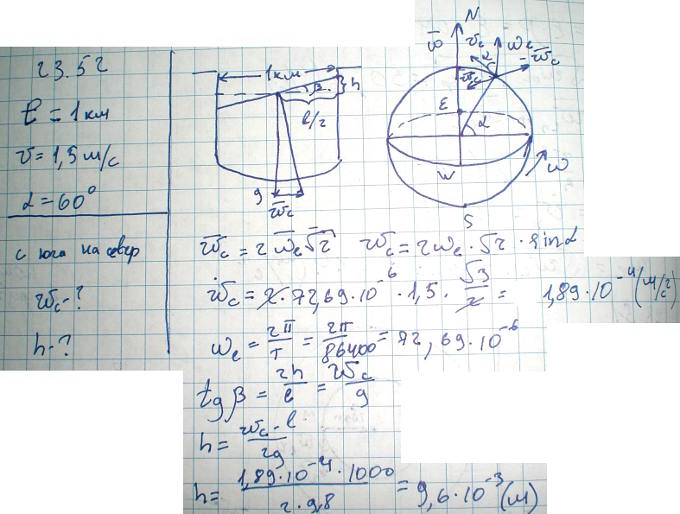 23.52
ℓ = 1 км
v = 1,5 м/с
α = 60°
с юга на север
w_c - ?
h - ?
1 км
β
h
ℓ/2
g
w̄_c
N
ω̄
v_r
ω_e
w̄_c
α
E
α
W
ω
S
w̄_c = 2 ω̄_e v̄_r w_c = 2ω_e · v_r · sin α
w_c = 2 · 72,69 · 10⁻⁶ · 1,5 · √3/2 = 1,89 · 10⁻⁴ (м/с²)
ω_e = 2π/T = 2π/86400 = 72,69 · 10⁻⁶
tg β = 2h/ℓ = w_c/g
h = w_c · ℓ/2g
h = 1,89 · 10⁻⁴ · 1000/2 · 9,8 = 9,6 · 10⁻³ (м)